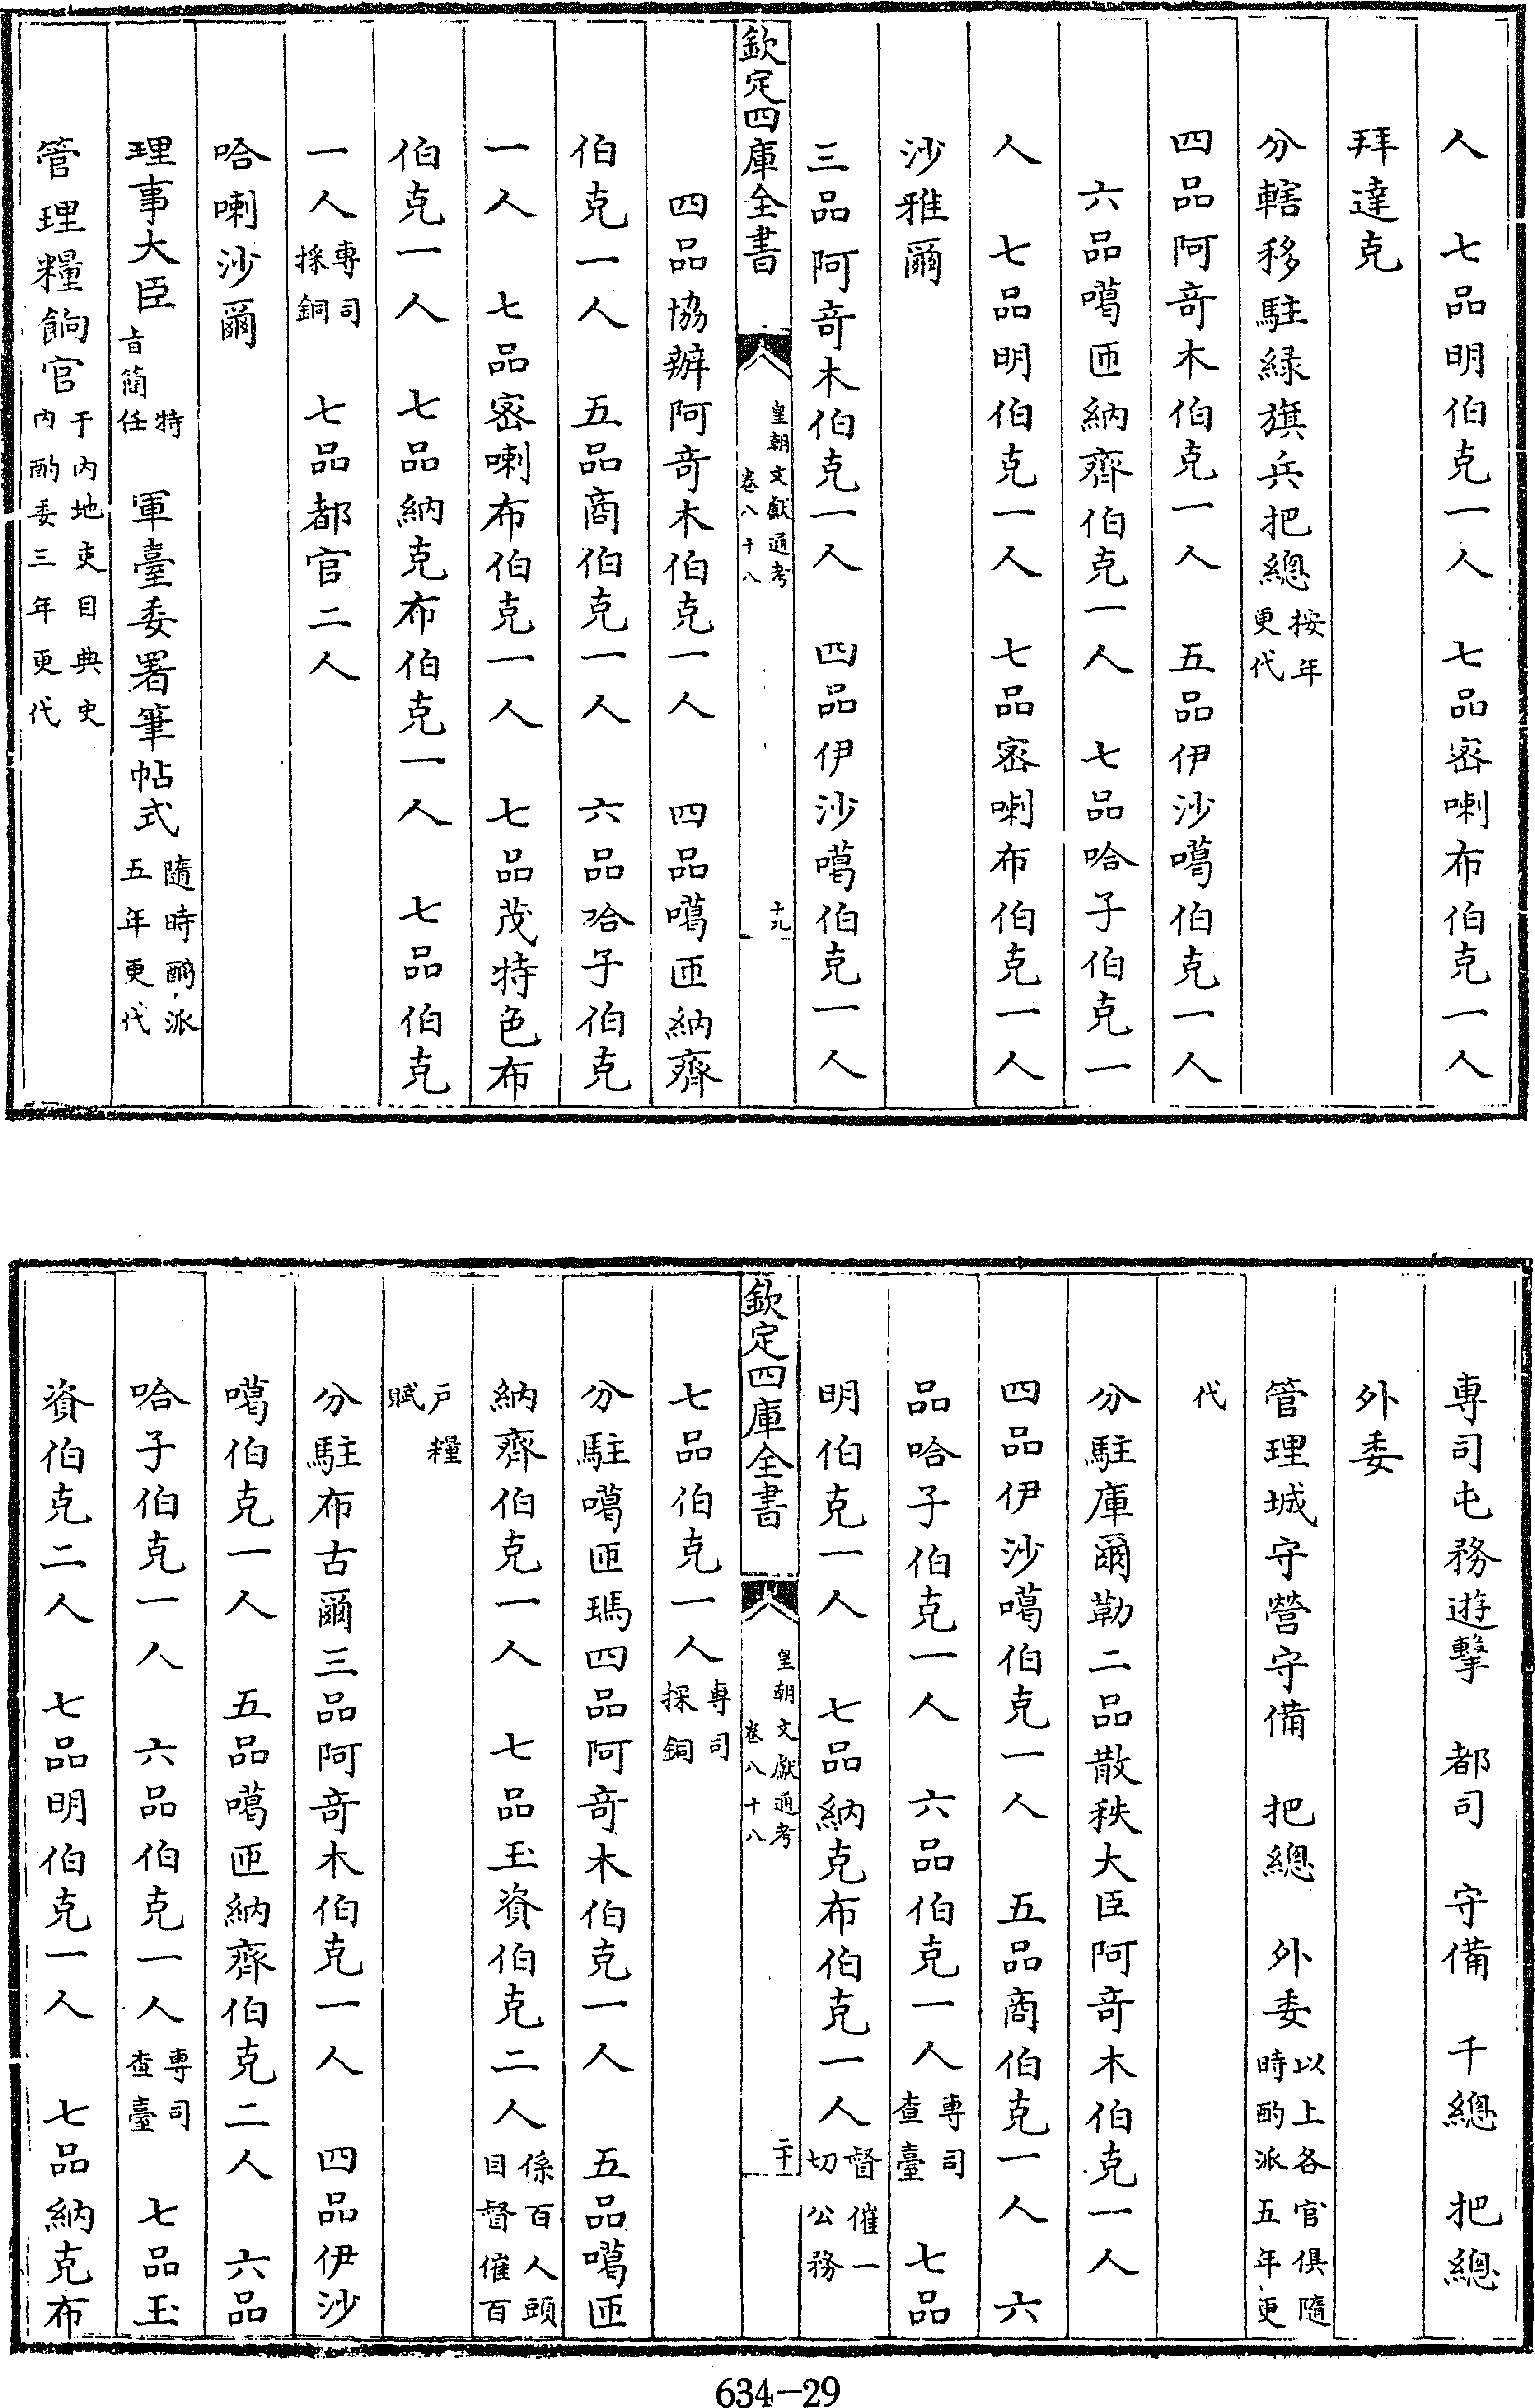 人　七品明伯克一人　七品宻喇布伯克一人
拜達克
分轄移駐緑旗兵把總按年更代
四品阿竒木伯克一人　五品伊沙噶伯克一人
六品噶匝納齊伯克一人　七品哈子伯克一
人　七品明伯克一人　七品宻喇布伯克一人
沙雅爾
三品阿竒木伯克一人　四品伊沙噶伯克一人
欽定四庫全書　皇朝文獻通考　卷八十八　十九
四品協辦阿竒木伯克一人　四品噶匝納齊
伯克一人　五品商伯克一人　六品哈子伯克
一人　七品宻喇布伯克一人　七品茂特色布
伯克一人　七品納克布伯克一人　七品伯克
一人專司採銅　七品都官二人
哈喇沙爾
理事大臣特旨簡任　軍臺委署筆帖式隨時酌派五年更代
管理糧餉官于内地吏目典史内酌委三年更代
專司屯務遊擊　都司　守備　千總　把總
外委
管理城守營守備　把總　外委以上各官俱隨時酌派五年更
代
分駐庫爾勒二品散秩大臣阿竒木伯克一人
四品伊沙噶伯克一人　五品商伯克一人　六
品哈子伯克一人　六品伯克一人專司查臺　七品
明伯克一人　七品納克布伯克一人督催一切公務
欽定四庫全書　皇朝文獻通考　卷八十八　二十
七品伯克一人專司採銅
分駐噶匝瑪四品阿竒木伯克一人　五品噶匝
納齊伯克一人　七品玉資伯克二人係百人頭目督催百
戸糧賦
分駐布古爾三品阿竒木伯克一人　四品伊沙
噶伯克一人　五品噶匝納齊伯克二人　六品
哈子伯克一人　六品伯克一人專司查臺　七品玉
資伯克二人　七品明伯克一人　七品納克布
634-29